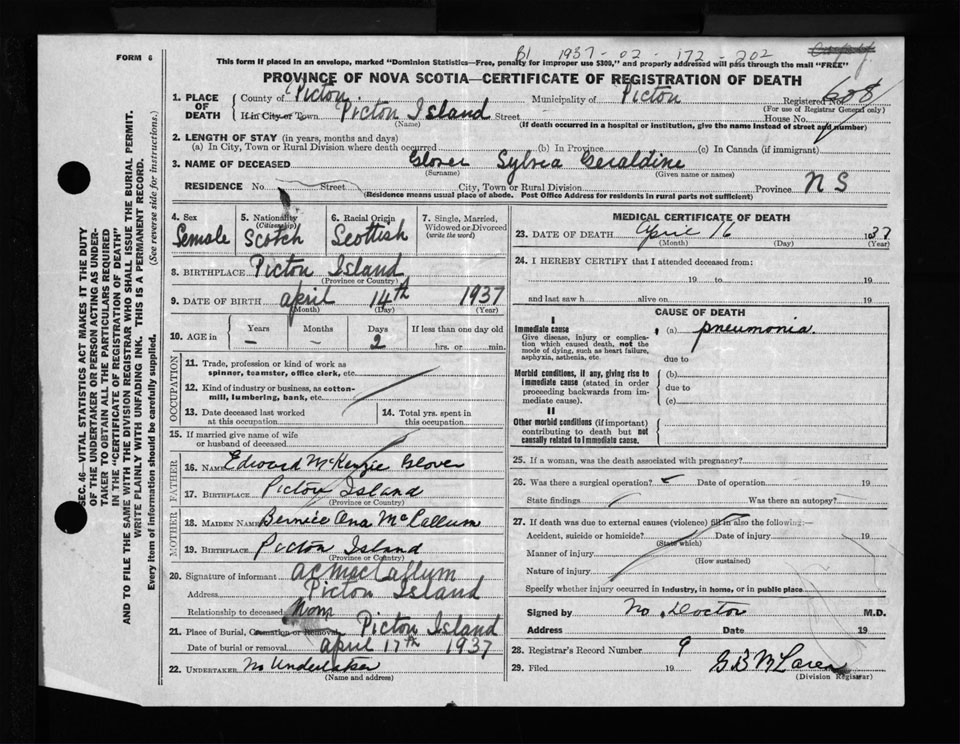 FORM 6
B1 1937-02-172-202
This form if placed in an envelope, marked "Dominion Statistics—Free, penalty for improper use $300," and properly addressed will pass through the mail "FREE"
PROVINCE OF NOVA SCOTIA—CERTIFICATE OF REGISTRATION OF DEATH
1. PLACE OF DEATH County of Picton Municipality of Picton Registered No. 608
(For use of Registrar General only)
If in City or Town Picton Island Street House No.
(Name) (If death occurred in a hospital or institution, give the name instead of street and number)
2. LENGTH OF STAY (in years, months and days)
(a) In City, Town or Rural Division where death occurred (b) In Province (c) In Canada (if immigrant)
3. NAME OF DECEASED Glover Sylvia Geraldine
(Surname) (Given name or names)
RESIDENCE No. Street City, Town or Rural Division Province N S
(Residence means usual place of abode. Post Office Address for residents in rural parts not sufficient)
4. Sex Female
5. Nationality (Citizenship) Scotch
6. Racial Origin Scottish
7. Single, Married, Widowed or Divorced (write the word)
8. BIRTHPLACE Picton Island
(Province or Country)
9. DATE OF BIRTH April 14th 1937
(Month) (Day) (Year)
10. AGE in Years Months Days If less than one day old
– – 2 hrs. or min.
OCCUPATION
11. Trade, profession or kind of work as spinner, teamster, office clerk, etc.
12. Kind of industry or business, as cotton-mill, lumbering, bank, etc.
13. Date deceased last worked at this occupation
14. Total yrs. spent in this occupation
15. If married give name of wife or husband of deceased
FATHER
16. NAME Edward McKenzie Glover
17. BIRTHPLACE Picton Island
(Province or Country)
MOTHER
18. MAIDEN NAME Bernice Ana McCallum
19. BIRTHPLACE Picton Island
(Province or Country)
20. Signature of informant AC MacCallum
Address Picton Island
Relationship to deceased
21. Place of Burial, Cremation or Removal Picton Island
Date of burial or removal April 17th 1937
22. UNDERTAKER No Undertaker
(Name and address)
MEDICAL CERTIFICATE OF DEATH
23. DATE OF DEATH April 16 1937
(Month) (Day) (Year)
24. I HEREBY CERTIFY that I attended deceased from:
19 to 19
and last saw h alive on 19
CAUSE OF DEATH
I
Immediate cause (a) pneumonia.
Give disease, injury or complication which caused death, not the mode of dying, such as heart failure, asphyxia, asthenia, etc.
due to
Morbid conditions, if any, giving rise to immediate cause (stated in order proceeding backwards from immediate cause).
(b)
due to
(c)
II
Other morbid conditions (if important) contributing to death but not causally related to immediate cause.
25. If a woman, was the death associated with pregnancy?
26. Was there a surgical operation? Date of operation 19
State findings Was there an autopsy?
27. If death was due to external causes (violence) fill in also the following:—
Accident, suicide or homicide? Date of injury 19
(State which)
Manner of injury
(How sustained)
Nature of injury
Specify whether injury occurred in industry, in home, or in public place
Signed by No Doctor M.D.
Address Date 19
28. Registrar's Record Number 9
29. Filed 19 G B McLaren
(Division Registrar)
SEC. 46—VITAL STATISTICS ACT MAKES IT THE DUTY
OF THE UNDERTAKER OR PERSON ACTING AS UNDERTAKER TO OBTAIN ALL THE PARTICULARS REQUIRED
IN THE "CERTIFICATE OF REGISTRATION OF DEATH"
AND TO FILE THE SAME WITH THE DIVISION REGISTRAR WHO SHALL ISSUE THE BURIAL PERMIT.
WRITE PLAINLY WITH UNFADING INK. THIS IS A PERMANENT RECORD.
Every item of information should be carefully supplied. (See reverse side for instructions.)